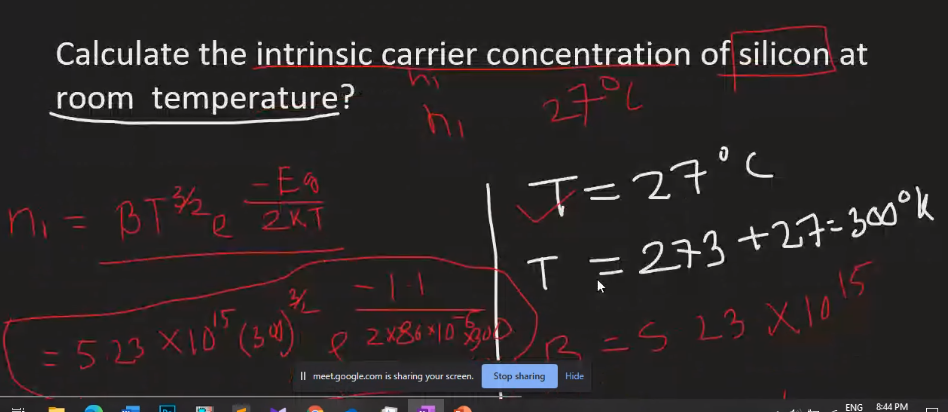 Calculate the intrinsic carrier concentration of silicon at
room temperature?
n₁
n₁ 27°C
n₁ = BT^3/2 e^(-Eg/2KT)
T = 27°C
T = 273 + 27 = 300°K
= 5 23 × 10^15 (300)^3/2 e^(-1.1/2×86×10^-6×300)
B = 5 23 × 10^15
meet.google.com is sharing your screen. Stop sharing Hide
ENG 8:44 PM